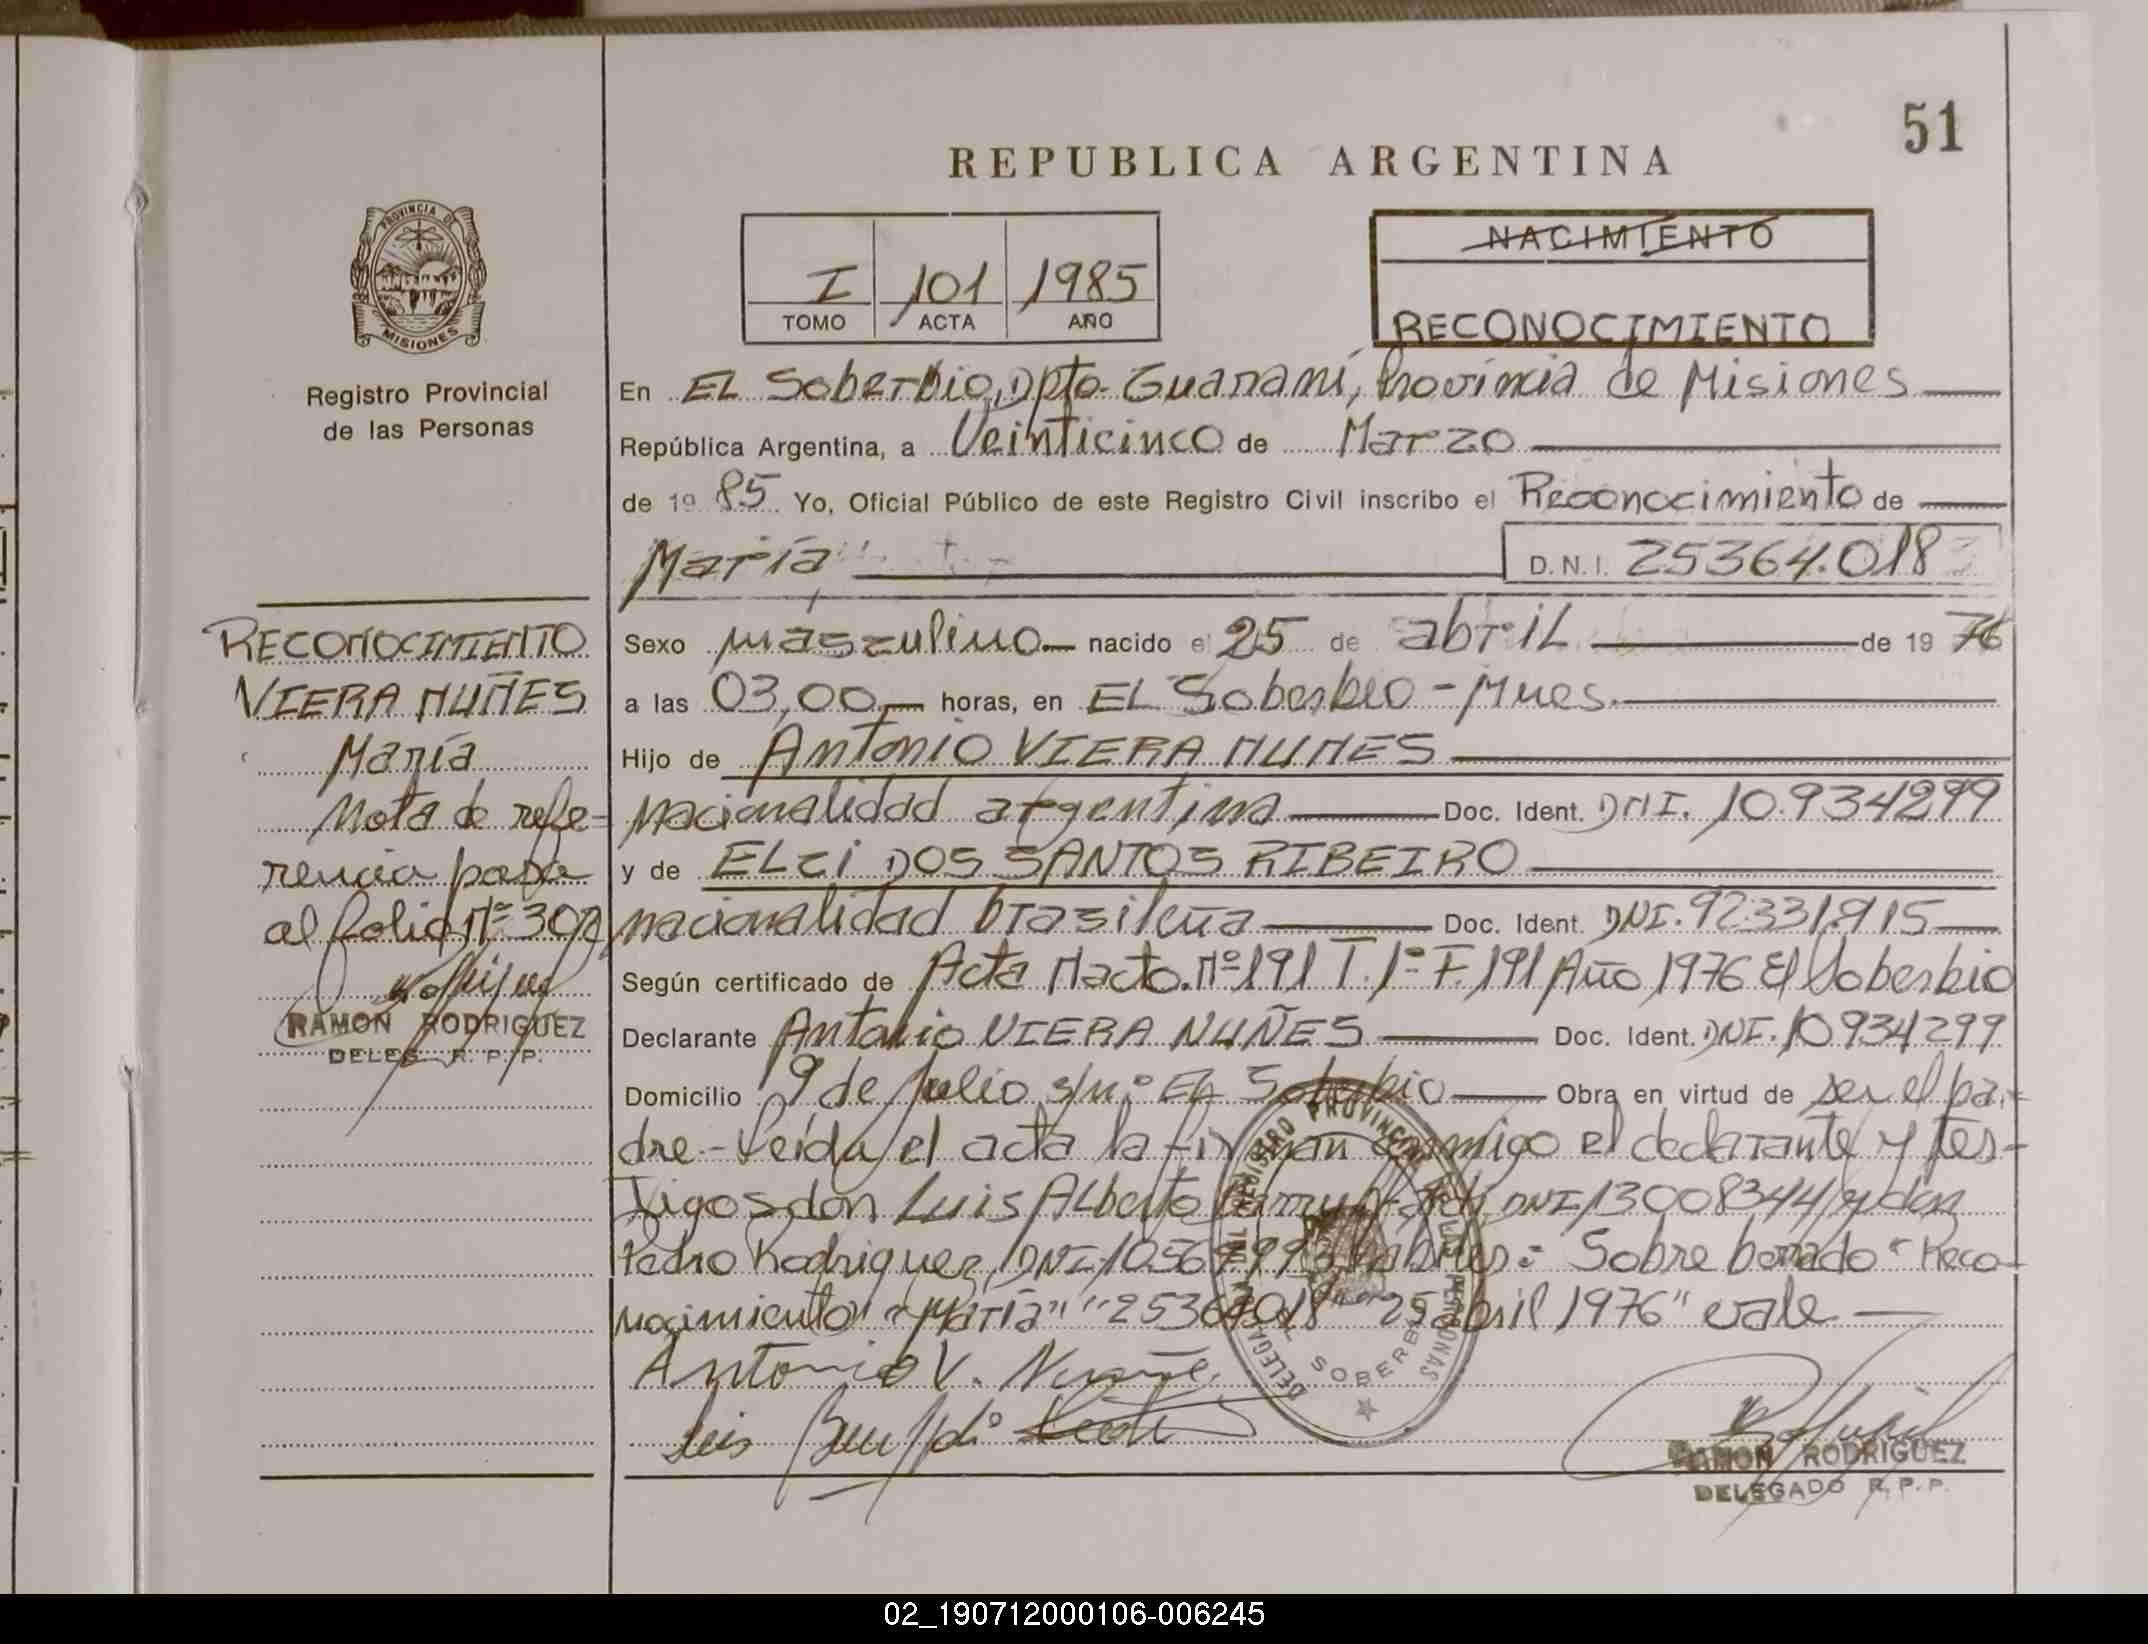 51
REPUBLICA ARGENTINA
PROVINCIA DE
MISIONES
Registro Provincial
de las Personas
I 101 1985
TOMO ACTA AÑO
NACIMIENTO
RECONOCIMIENTO
En EL Soberbio, Dpto. Guaraní, Provincia de Misiones
República Argentina, a Veinticinco de Marzo
de 1985 Yo, Oficial Público de este Registro Civil inscribo el Reconocimiento de
María D.N.I. 25364.018
Sexo masculino nacido el 25 de abril de 1976
a las 03,00 horas, en EL Soberbio - Mnes.
Hijo de Antonio VIERA NUNES
nacionalidad argentina Doc. Ident. DNI. 10.934299
y de ELCI DOS SANTOS RIBEIRO
nacionalidad brasileña Doc. Ident. DNI. 92.331.915
Según certificado de Acta Nacto. Nº 191 T. 1º F. 191 Año 1976 El Soberbio
Declarante Antonio VIERA NUÑES Doc. Ident. DNI. 10934299
Domicilio 9 de Julio s/nº EL Soberbio Obra en virtud de ser el pa-
dre.- Leída el acta la firman conmigo el declarante y tes-
tigos don Luis Alberto DNI 13008344 y don
Pedro Rodriguez, DNI hábiles: Sobre borrado "Reco-
nocimiento" "María" "25364018" "25 abril 1976" vale
Antonio V. Nuñe
Luis
RAMON RODRIGUEZ
DELEGADO R.P.P.
RECONOCIMIENTO
VIERA NUÑES
María
Nota de refe-
rencia pasa
al folio Nº
RAMON RODRIGUEZ
DELEG. R.P.P.
DELEGA DEL REGISTRO PROVINCIAL DE LAS PERSONAS
EL SOBERBIO
02_190712000106-006245